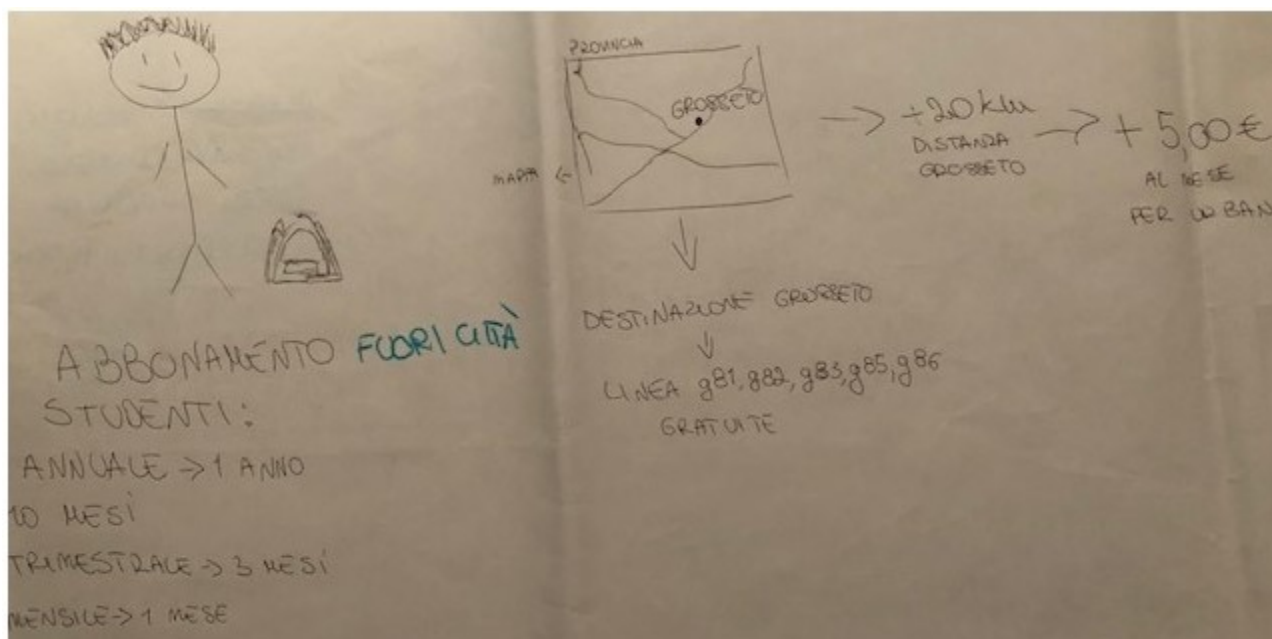 PROVINCIA
GROSSETO
MAPPA ←
→ +20 km → + 5,00 €
DISTANZA
GROSSETO
AL MESE
PER URBAN
DESTINAZIONE GROSSETO
LINEA g81, g82, g83, g85, g86
GRATUITE
ABBONAMENTO FUORI CITTÀ
STUDENTI:
ANNUALE → 1 ANNO
10 MESI
TRIMESTRALE → 3 MESI
MENSILE → 1 MESE